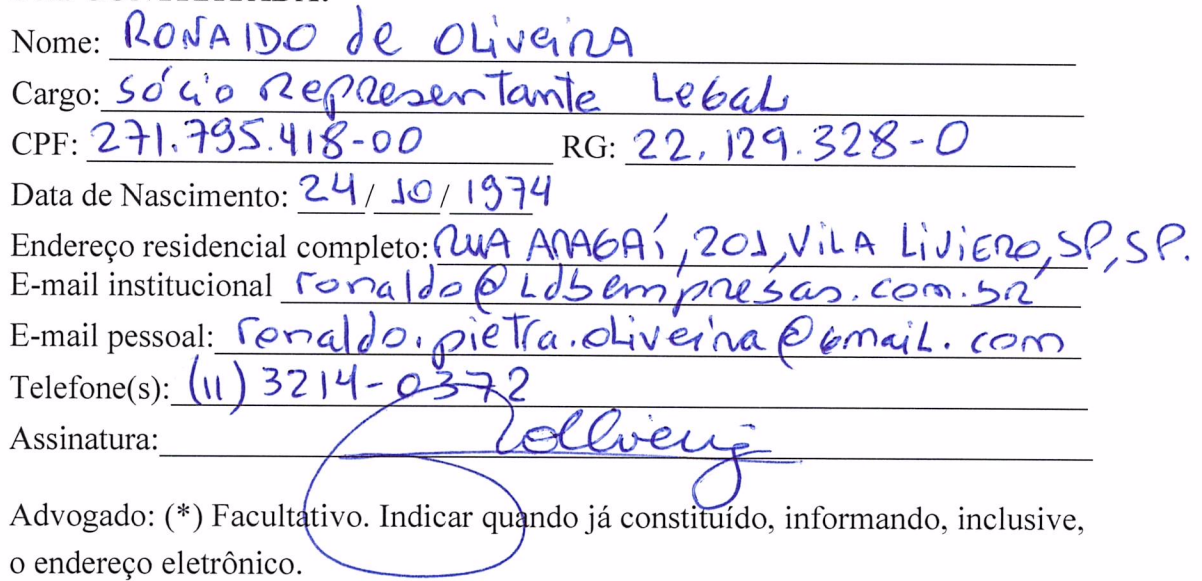 Nome: RONALDO de OLiveiRA
Cargo: Sócio Representante Legal
CPF: 271.795.418-00 RG: 22.129.328-0
Data de Nascimento: 24/10/1974
Endereço residencial completo: RUA ARAGAÍ, 201, ViLA LiViERO, SP, SP.
E-mail institucional ronaldo@Ldbempresas.com.br
E-mail pessoal: ronaldo.pietra.oliveira@gmail.com
Telefone(s): (11) 3214-0372
Assinatura:
Advogado: (*) Facultativo. Indicar quando já constituído, informando, inclusive,
o endereço eletrônico.